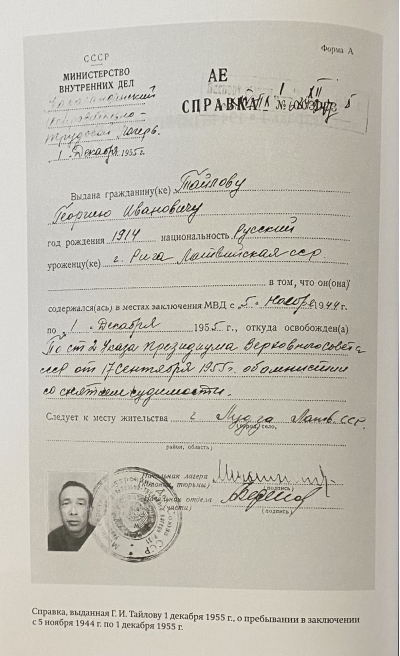 СССР
МИНИСТЕРСТВО
ВНУТРЕННИХ ДЕЛ
исправительно-
трудовой лагерь
1 Декабря 1955 г.
Форма А
АЕ
СПРАВКА №
Выдана гражданину(ке) Тайлову
Георгию Ивановичу
год рождения 1914 национальность Русский
уроженцу(ке) г. Рига Латвийская сср
в том, что он(она)
содержался(ась) в местах заключения МВД с 5. Ноября 1944 г.
по 1 Декабря 1955 г., откуда освобожден(а)
По ст 2 Указа Президиума Верховного Совета
ссср от 17 Сентября 1955 г. об амнистии
со снятием судимости.
Следует к месту жительства г. Лудза Латв. ССР.
(город, село,
район, область)
Начальник лагеря
(колонии, тюрьмы)
(подпись)
Начальник отдела
(части)
(подпись)
Справка, выданная Г. И. Тайлову 1 декабря 1955 г., о пребывании в заключении
с 5 ноября 1944 г. по 1 декабря 1955 г.